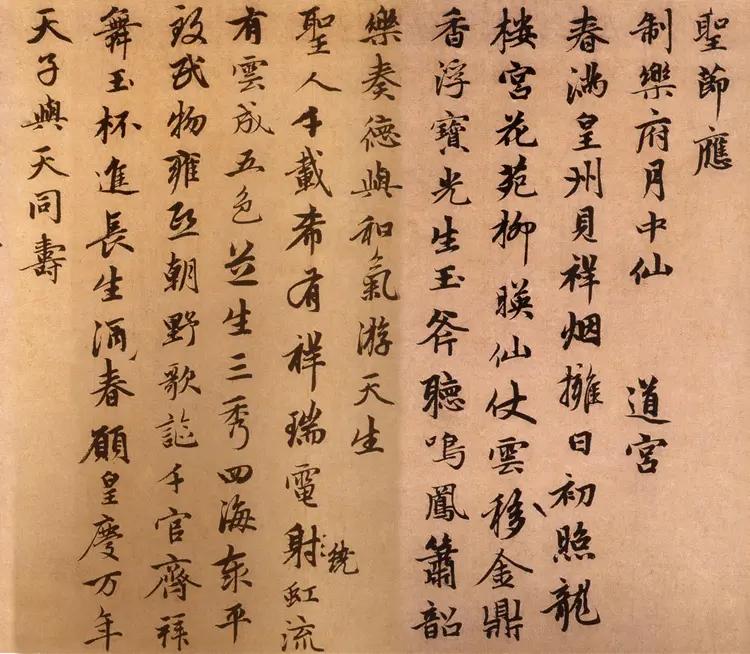 聖節應
制樂府月中仙 道宮
春滿皇州見祥烟擁日初照龍
楼宮花苑柳暎仙仗雲移金鼎
香浮寶光生玉斧聽鳴鳳簫韶
樂奏德與和氣游天生
聖人千載希有祥瑞電射虹流
繞
有雲成五色芝生三秀四海泰平
致民物雍熙朝野歌謳千官齊拜
舞玉杯進長生酒春願皇慶万年
天子與天同壽